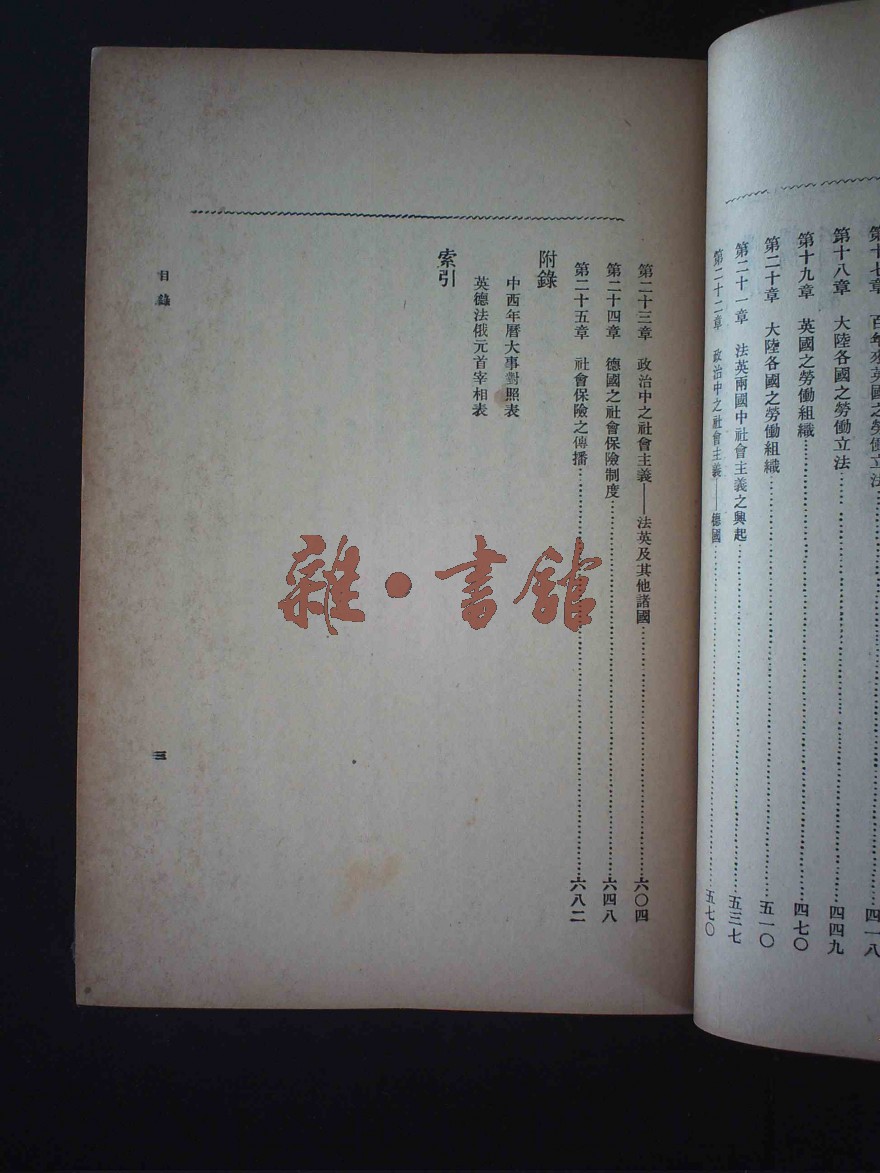 第十七章 百年來英國之勞働立法……四一八
第十八章 大陸各國之勞働立法……四四九
第十九章 英國之勞働組織……四七〇
第二十章 大陸各國之勞働組織……五一〇
第二十一章 法英兩國中社會主義之興起……五三七
第二十二章 政治中之社會主義——德國……五七〇
第二十三章 政治中之社會主義——法英及其他諸國……六〇四
第二十四章 德國之社會保險制度……六四八
第二十五章 社會保險之傳播……六八二
附錄
中西年曆大事對照表
英德法俄元首宰相表
索引
目錄
三
雜·書館